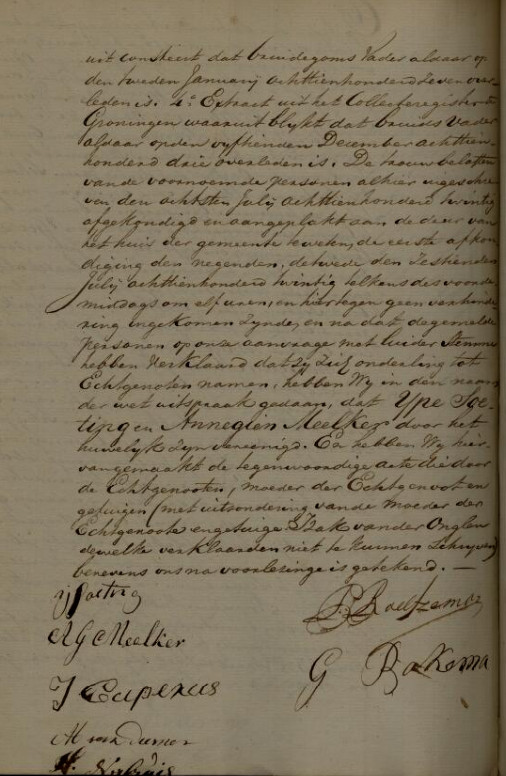 uit consteert dat bruidegoms Vader aldaar op
den tweden Januarij achttienhonderd zeven over-
leden is. 4o. Extract uit het Collecteregister te
Groningen waaruit blykt dat bruids Vader
aldaar op den vyftienden December achttien-
honderd drie overleden is. De trouwbeloften
van de voornoemde personen alhier ingeschre
ven den achtsten July achttienhonderd twintig
afgekondigd en aangeplakt aan de deur van
het huis der gemeente te weten, de eerste afkon
diging den negenden, de twede den Zestienden
July achttienhonderd twintig telkens des voorde
middags om elf uren, en hiertegen geen verhinde
ring ingekomen zynde, en na dat de gemelde
personen op onze aanvraage met luider Stemme
hebben Verklaard dat zij Zich onderling tot
Echtgenoten namen, hebben Wy in den naam
der wet uitspraak gedaan, dat Ype Soe-
ting en Annegien Meelker door het
huwelyk zyn vereenigd. En hebben Wy hier
van gemaakt de tegenwoordige acte die door
de Echtgenooten, moeder der Echtgenooten en
getuigen (met uitsondering van de moeder der
Echtgenoote en getuige Izak van der Onglen
dewelke verklaarden niet te kunnen Schryven)
benevens ons na voorlesinge is getekend. —
ij Soeting
A G Meelker
G Bakema
J Cuperus